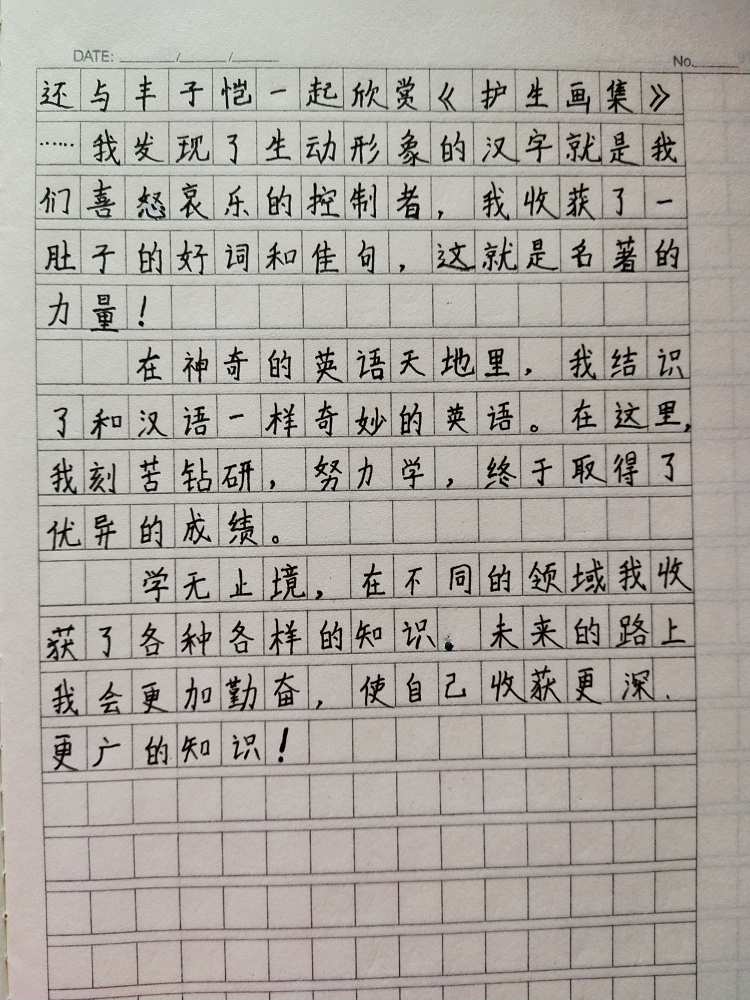 DATE: ____/____/____ No.____
还与丰子恺一起欣赏《护生画集》
……我发现了生动形象的汉字就是我
们喜怒哀乐的控制者，我收获了一
肚子的好词和佳句，这就是名著的
力量！
在神奇的英语天地里，我结识
了和汉语一样奇妙的英语。在这里，
我刻苦钻研，努力学，终于取得了
优异的成绩。
学无止境，在不同的领域我收
获了各种各样的知识。未来的路上
我会更加勤奋，使自己收获更深、
更广的知识！